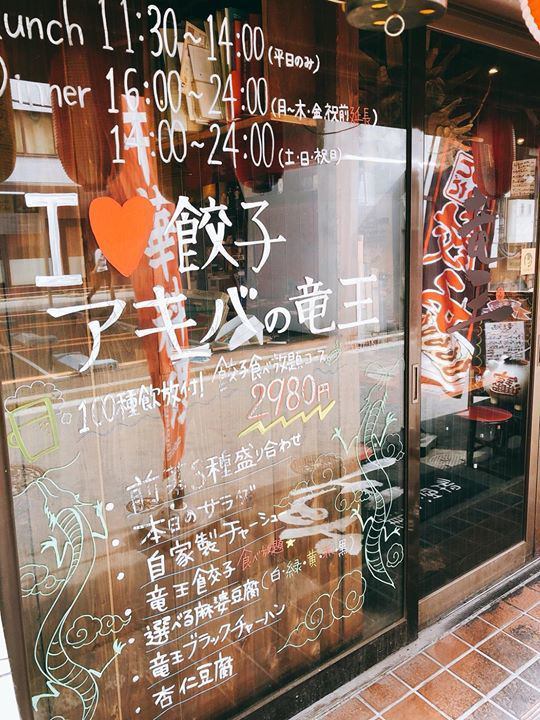 Lunch 11:30~14:00(平日のみ)
Dinner 16:00~24:00(月~木・金祝前延長)
14:00~24:00(土・日・祝日)
I♥餃子
アキバの竜王
100種飲放付!餃子食べ放題コース
2980円
・前菜3種盛り合わせ
・本日のサラダ
・自家製チャーシュー
・竜王餃子 食べ放題★
・選べる麻婆豆腐(白・緑・黄・赤・黒)
・竜王ブラックチャーハン
・杏仁豆腐